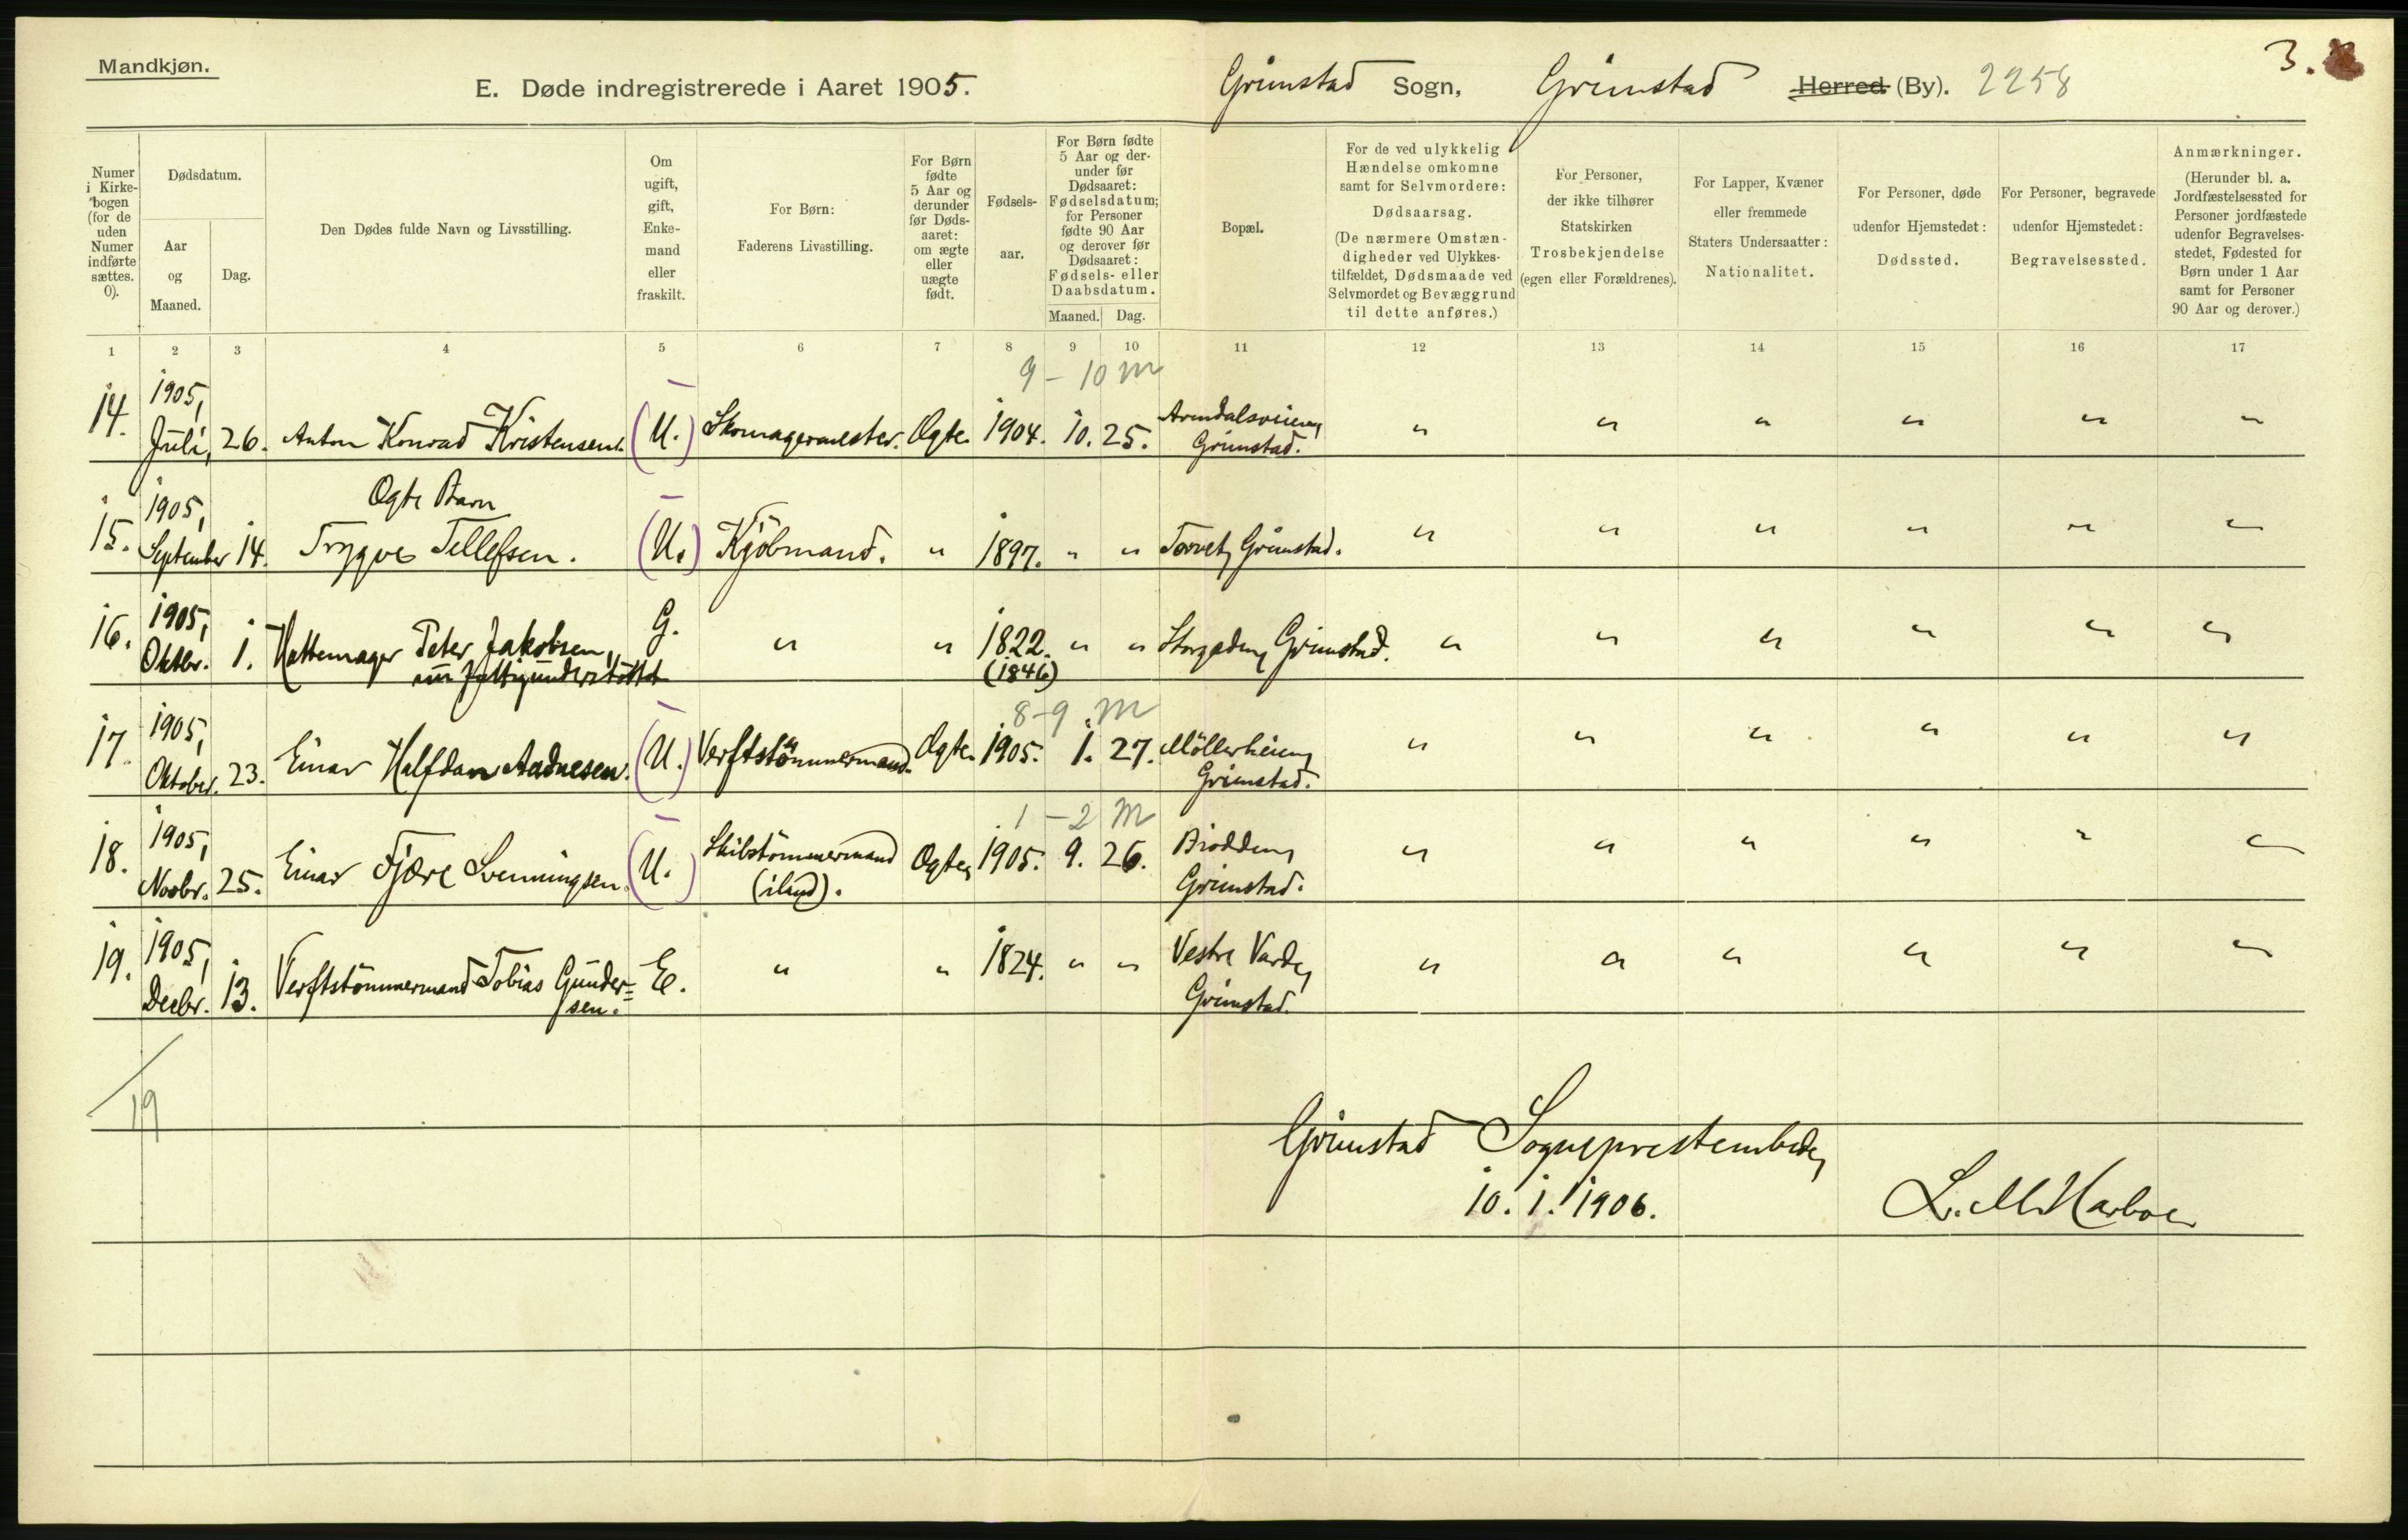 Mandkjøn.
E. Døde indregistrerede i Aaret 1905.
Grimstad Sogn, Grimstad Herred. (By). 2258
3.
Numer i Kirkebogen (for de uden Numer indførte sættes. 0).
Dødsdatum.
Aar og Maaned.
Dag.
Den Dødes fulde Navn og Livsstilling.
Om ugift, gift, Enkemand eller fraskilt.
For Børn:
Faderens Livsstilling.
For Børn fødte 5 Aar og derunder før Dødsaaret: om ægte eller uægte født.
Fødselsaar.
For Børn fødte 5 Aar og derunder før Dødsaaret: Fødselsdatum; for Personer fødte 90 Aar og derover før Dødsaaret: Fødsels- eller Daabsdatum.
Maaned. Dag.
Bopæl.
For de ved ulykkelig Hændelse omkomne samt for Selvmordere:
Dødsaarsag.
(De nærmere Omstændigheder ved Ulykkestilfældet, Dødsmaade ved Selvmordet og Bevæggrund til dette anføres.)
For Personer, der ikke tilhører Statskirken
Trosbekjendelse
(egen eller Forældrenes).
For Lapper, Kvæner eller fremmede Staters Undersaatter:
Nationalitet.
For Personer, døde udenfor Hjemstedet:
Dødssted.
For Personer, begravede udenfor Hjemstedet:
Begravelsessted.
Anmærkninger.
(Herunder bl. a. Jordfæstelsessted for Personer jordfæstede udenfor Begravelsesstedet, Fødested for Børn under 1 Aar samt for Personer 90 Aar og derover.)
1 2 3 4 5 6 7 8 9 10 11 12 13 14 15 16 17
9 – 10 m
14. 1905, Juli, 26. Anton Konrad Kristensen. (U.) Skomagermester. Ægte. 1904. 10. 25. Arendalsveien, Grimstad. " " " " " "
Ægte Barn
15. 1905, September 14. Trygve Tellefsen. (U.) Kjöbmand. " 1897. " " Torvet, Grimstad. " " " " " "
16. 1905, Oktbr. 1. Hattemager Peter Jakobsen, G. " " 1822. " " Storgaden, Grimstad. " " " " " "
(1846)
8–9 m
17. 1905, Oktober. 23. Einar Halfdan Aadnesen. (U.) Verftstömmermand. Ægte. 1905. 1. 27. Möllerheien, Grimstad. " " " " " "
1 – 2 m
18. 1905, Novbr. 25. Einar Fjære Svenningsen. (U.) Skibstömmermand Ægte, 1905. 9. 26. Brodden, Grimstad. " " " " " "
19. 1905, Decbr. 13. Verftstömmermand Tobias Gundersen. E. " " 1824. " " Vestre Varde, Grimstad. " " " " " "
19
Grimstad Sogneprestembede,
10. 1. 1906. L. M. Harboe